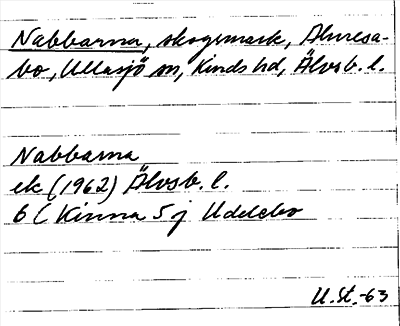 Nabbarna, skogsmark, Älvresa-
bo, Ullasjö sn, Kinds hd, Älvsb. l.
Nabbarna
ek (1962) Älvsb. l.
6 C Kinna 5 j Uddebo
U.St.-63